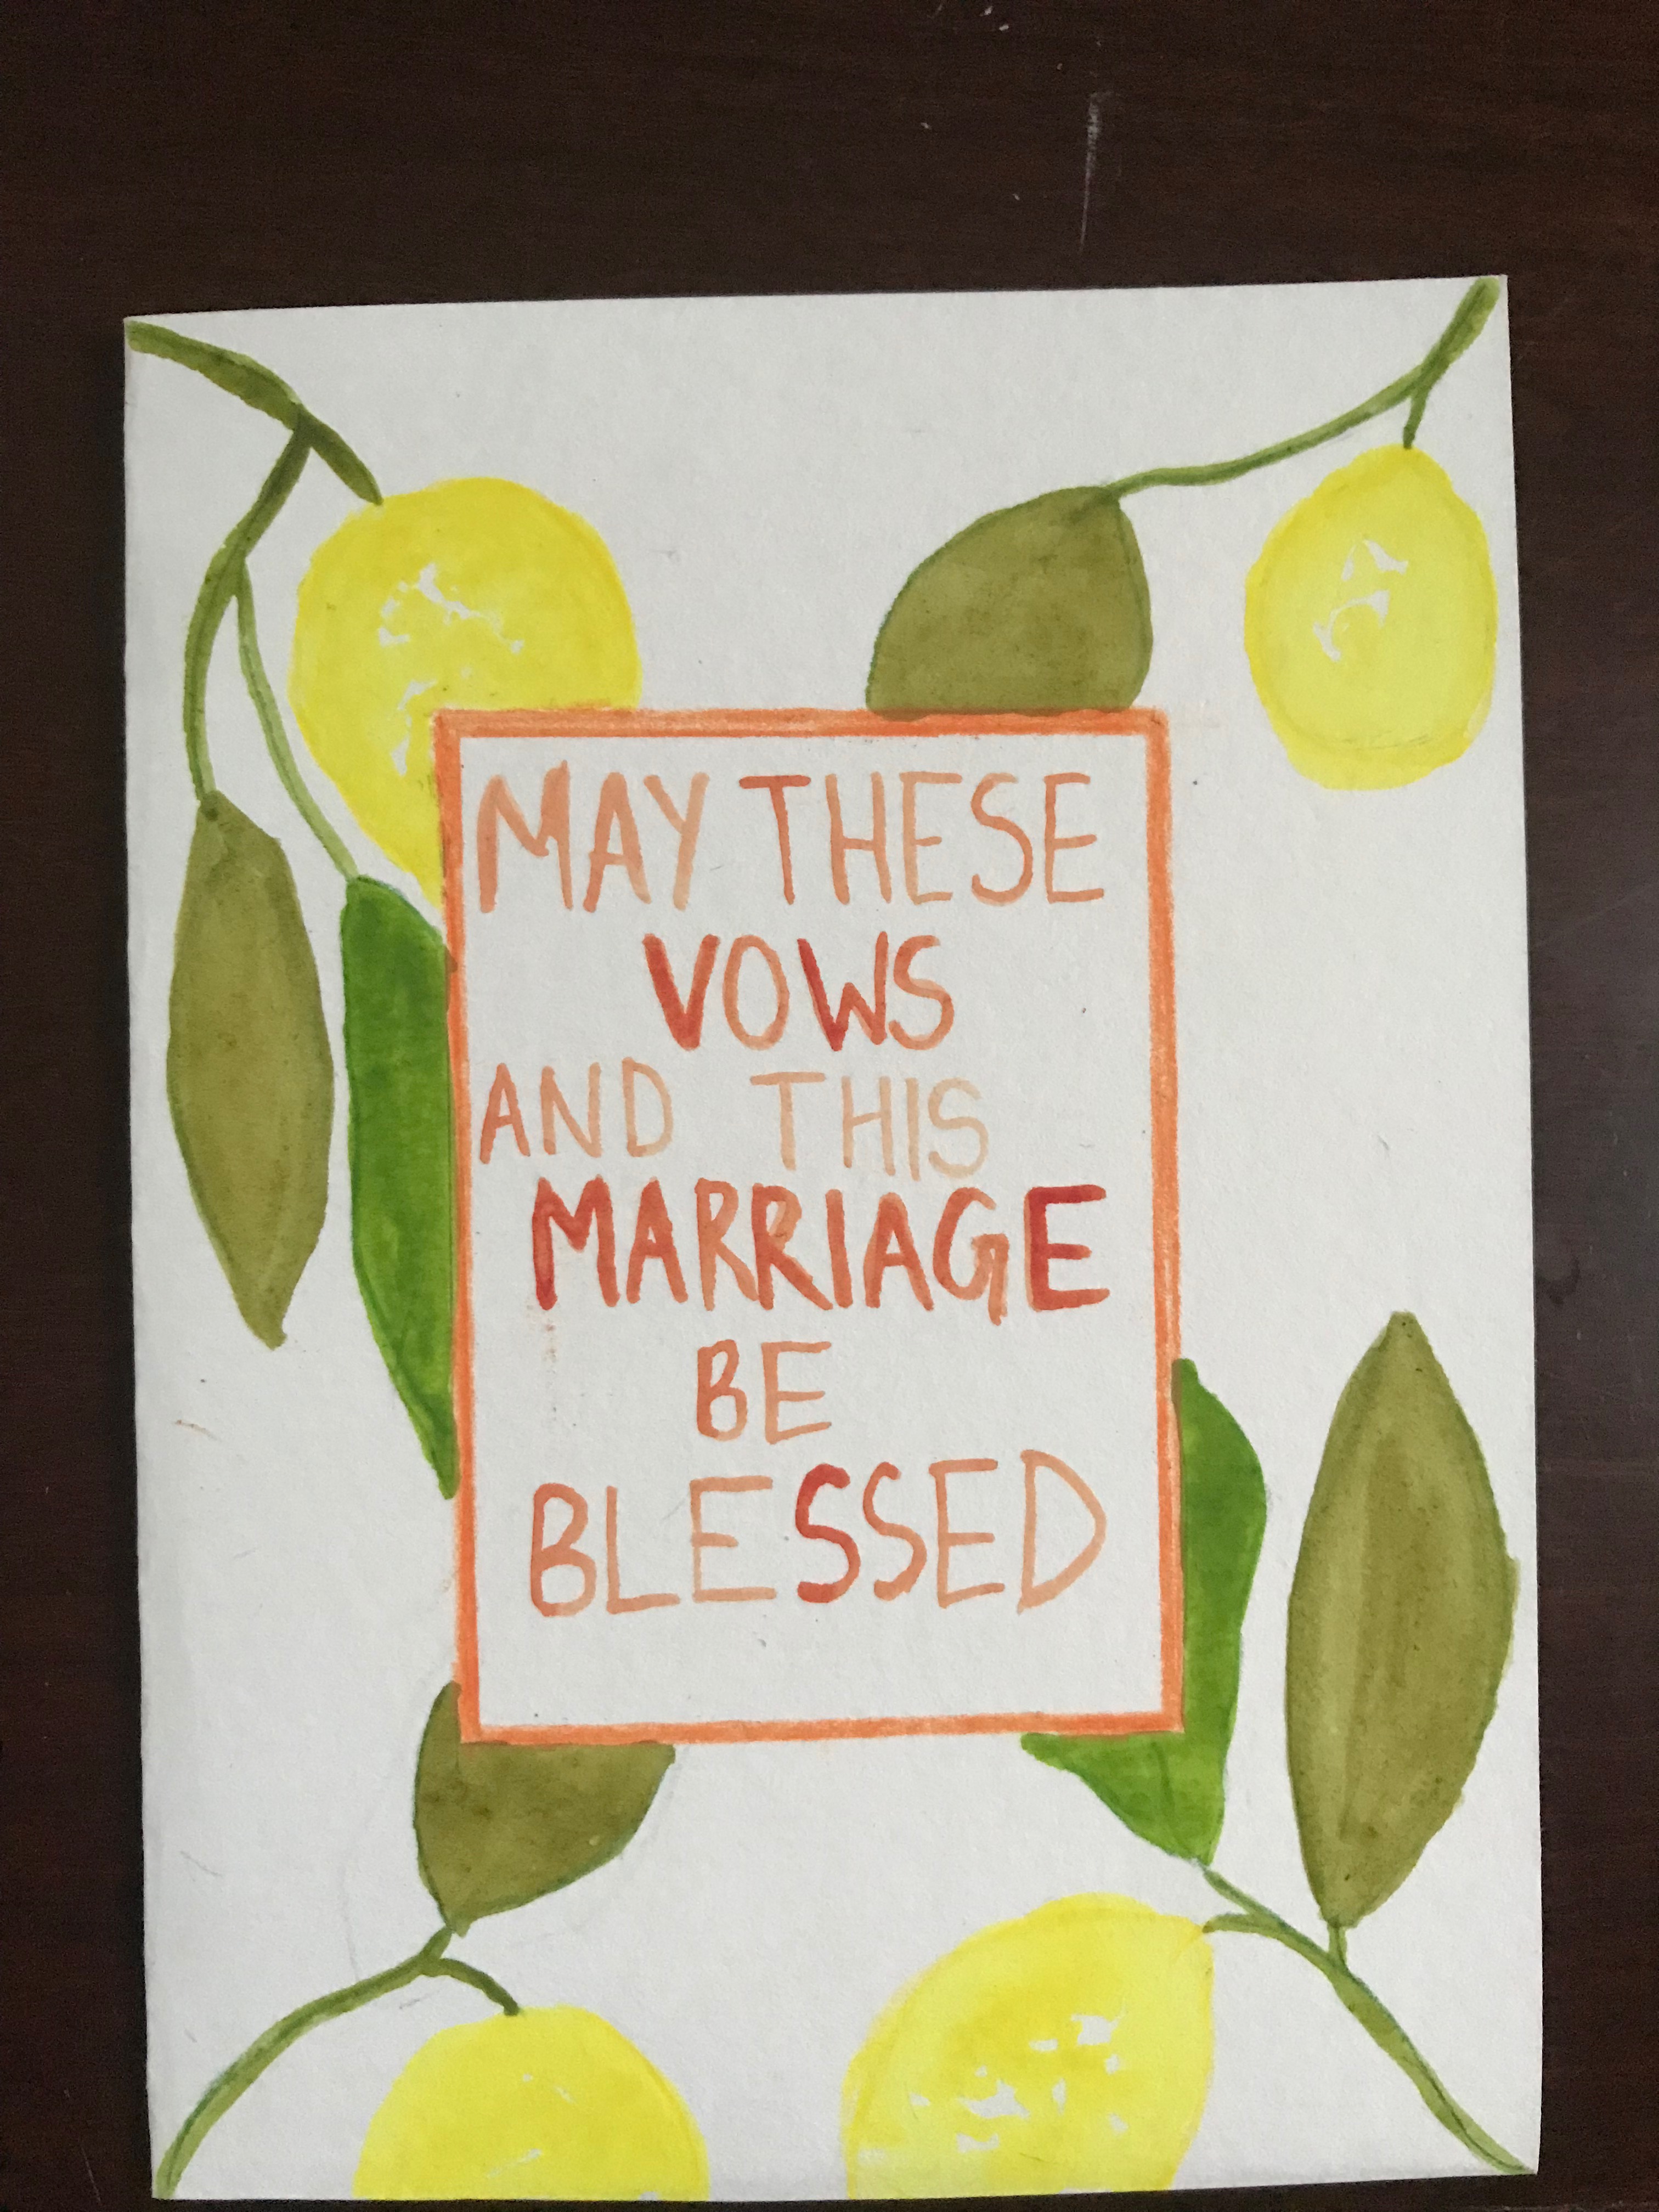 MAY THESE
VOWS
AND THIS
MARRIAGE
BE
BLESSED